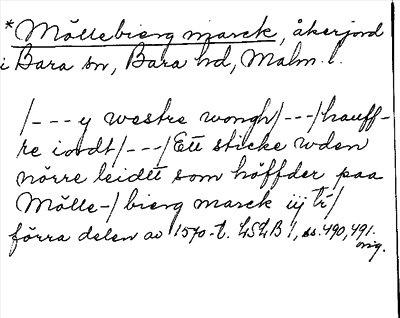 *Möllebierg marck, åkerjord
i Bara sn, Bara hd, Malm. l.
/---y westre wongh/---/hauff-
re iordt/---/Ett sticke wden
nörre leidtt som höffder paa
Mölle-/bierg marck iij tr/
förra delen av 1570-t. LSLB 1, ss. 490, 491.
orig.